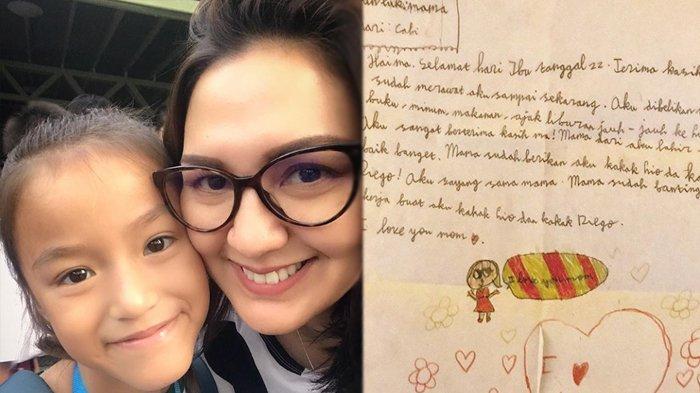 mama
ari : Cabi
Hai ma. Selamat hari Ibu tanggal 22. Terima kasih
sudah merawat aku sampai sekarang. Aku dibelikan
buku, minum, makanan, ajak liburan jauh-jauh ke
Aku sangat berterima kasih ma! Mama dari aku lahir
baik banget. Mama sudah berikan aku kakak hio da ka
Diego! Aku sayang sama mama. Mama sudah banting
kerja buat aku kakak hio dan kakak Diego.
I love you mom
I